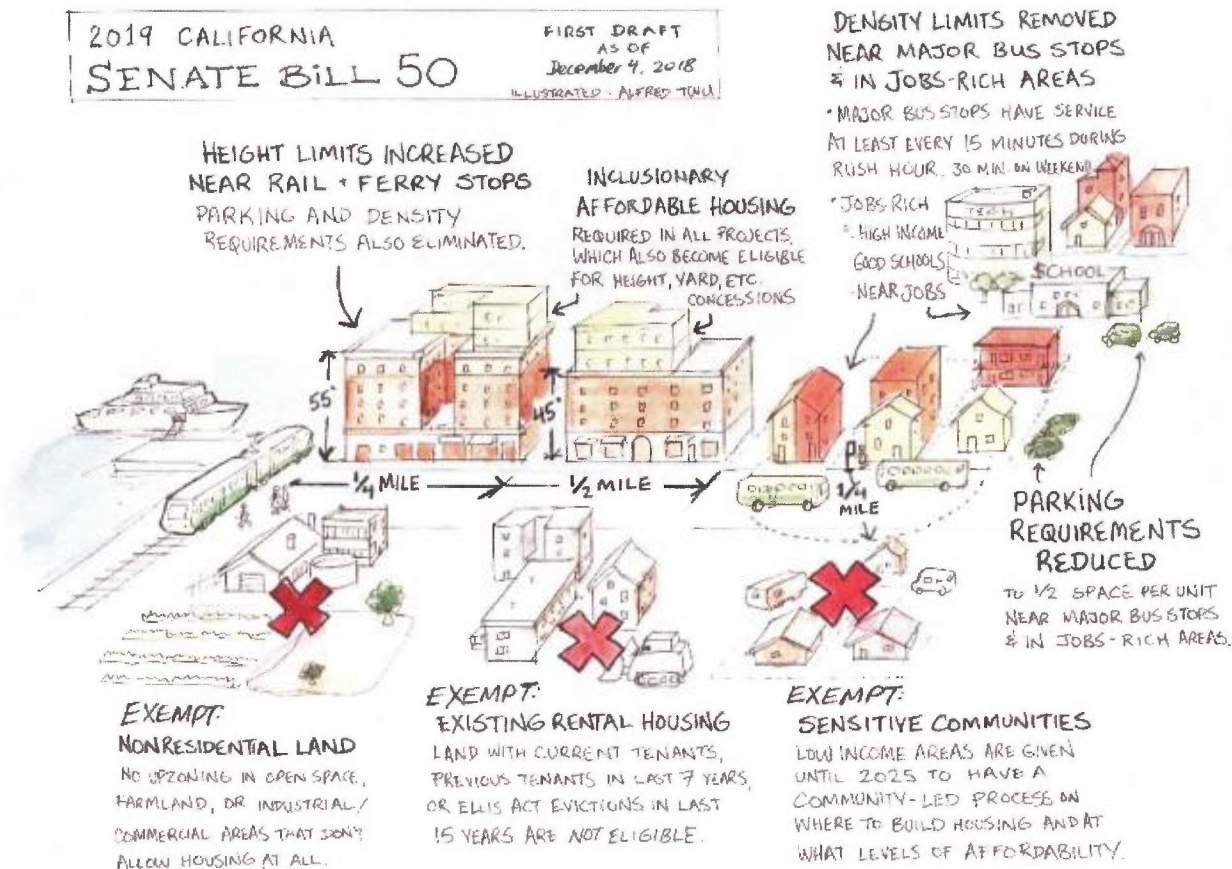 2019 CALIFORNIA
SENATE BILL 50
FIRST DRAFT
AS OF
December 4, 2018
ILLUSTRATED - ALFRED TWU
HEIGHT LIMITS INCREASED
NEAR RAIL + FERRY STOPS
PARKING AND DENSITY
REQUIREMENTS ALSO ELIMINATED.
INCLUSIONARY
AFFORDABLE HOUSING
REQUIRED IN ALL PROJECTS,
WHICH ALSO BECOME ELIGIBLE
FOR HEIGHT, YARD, ETC.
CONCESSIONS
DENSITY LIMITS REMOVED
NEAR MAJOR BUS STOPS
& IN JOBS-RICH AREAS
• MAJOR BUS STOPS HAVE SERVICE
AT LEAST EVERY 15 MINUTES DURING
RUSH HOUR, 30 MIN. ON WEEKEND
• JOBS-RICH
= HIGH INCOME
GOOD SCHOOLS
- NEAR JOBS
TECH
SCHOOL
55'
45'
1/4 MILE
1/2 MILE
1/4
MILE
PARKING
REQUIREMENTS
REDUCED
TO 1/2 SPACE PER UNIT
NEAR MAJOR BUS STOPS
& IN JOBS-RICH AREAS.
EXEMPT:
NONRESIDENTIAL LAND
NO UPZONING IN OPEN SPACE,
FARMLAND, OR INDUSTRIAL/
COMMERCIAL AREAS THAT DON'T
ALLOW HOUSING AT ALL.
EXEMPT:
EXISTING RENTAL HOUSING
LAND WITH CURRENT TENANTS,
PREVIOUS TENANTS IN LAST 7 YEARS,
OR ELLIS ACT EVICTIONS IN LAST
15 YEARS ARE NOT ELIGIBLE.
EXEMPT:
SENSITIVE COMMUNITIES
LOW INCOME AREAS ARE GIVEN
UNTIL 2025 TO HAVE A
COMMUNITY-LED PROCESS ON
WHERE TO BUILD HOUSING AND AT
WHAT LEVELS OF AFFORDABILITY.